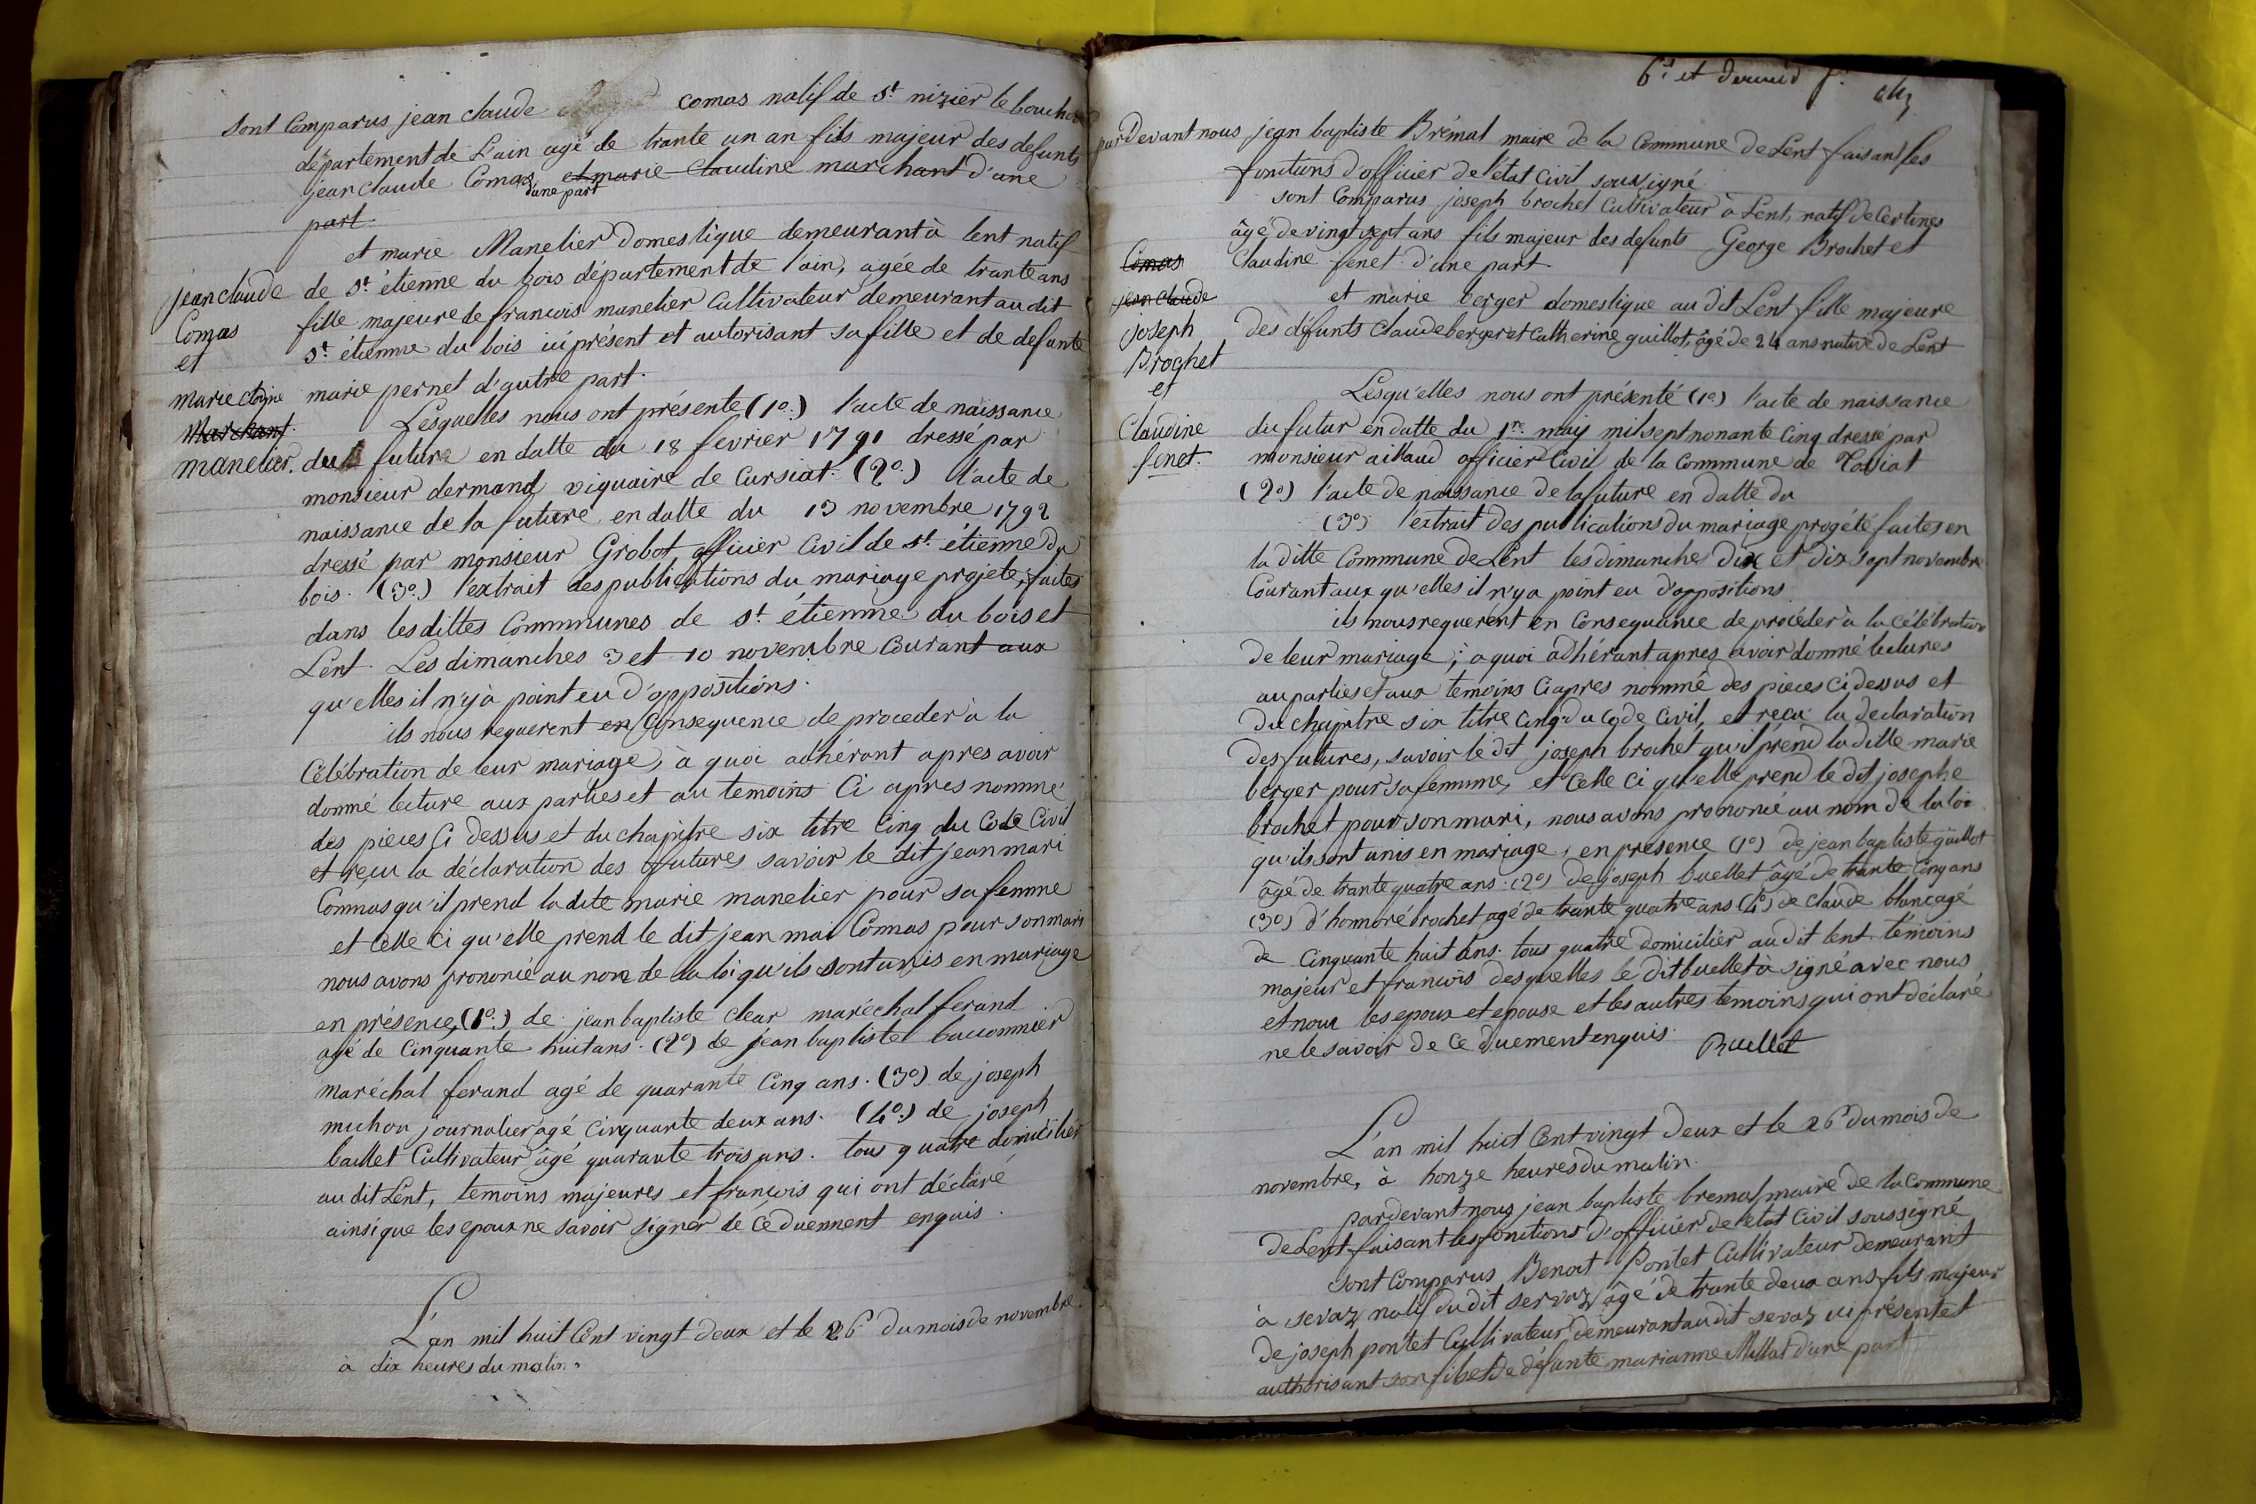 sont Comparus jean claude comas natif de St. nizier le bouchou
département de L'ain agé de trante un an fils majeur des defunts
jean claude Comas et marie Claudine marchant d'une
d'une part
part
et marie Manelier Domestique demeurant à lent natif
de St. étienne du bois département de l'ain, agée de trante ans
fille majeure de francois manelier Cultivateur demeurant au dit
St. étienne du bois ici présent et autorisant sa fille et de defunte
marie pernet d'autre part.
jean claude
Comas
et
marie
Marchant.
manelier.
Lesquelles nous ont présenté (1o.) l'acte de naissance
du future en datte du 18 fevrier 1791 dressé par
monsieur dermand viquaire de Cursiat. (2o.) l'acte de
naissance de la future en datte du 13 novembre 1792
dressé par monsieur Grobot officier Civil de St. étienne du
bois. (3o.) l'extrait des publications du mariage projeté, faites
dans les dittes Commmunes de St. étienne du bois et
Lent Les dimanches 3 et 10 novembre Courant aux
qu'elles il n'y à point eu d'oppositions.
ils nous requerent en Consequence de proceder à la
Célébration de leur mariage, à quoi adhérant apres avoir
donné lecture aux parties et au temoins Ci apres nommé
des pieces Ci dessus et du chapitre six titre Cinq du Code Civil
et reçu la déclaration des futures savoir le dit jean mari
Commas qu'il prend la dite marie manelier pour sa femme
et Celle Ci qu'elle prend le dit jean mai Comas pour son mari
nous avons prononcé au nom de la loi qu'ils sont unis en mariage
en présence, (1o.) de jean baptiste clear maréchal ferand
agé de Cinquante huit ans. (2o) de jean baptiste bauomnier
maréchal ferand agé de quarante Cinq ans. (3o) de joseph
michon journalier agé Cinquante deux ans. (4o.) de joseph
baillet Cultivateur âgé quarante trois ans. tous quatre domicilier
au dit Lent, temoins majeures et francois qui ont déclaré
ainsi que les epoux ne savoir signer de Ce duement enquis.
L'an mil huit Cent vingt deux et le 26 du mois de novembre
à dix heures du matin.
6e. et dernier f.
par Devant nous jean baptiste Brémal maire de la Commune de Lent faisant les
fonctions d'officier de l'état Civil soussigné
sont Comparus joseph brochet Cultivateur à Lent, natif de Certines
âgé de vingt sept ans fils majeur des defunts George Brochet et
Claudine fenet d'une part
Comas
jean claude
joseph
Brochet
et
Claudine
fenet.
et marie berger domestique au dit Lent fille majeure
des défunts Claude berger et Catherine guillot, âgé de 24 ans native de Lent
Lesqu'elles nous ont présenté (1o) l'acte de naissance
du futur en datte du 1er. maij mil sept nonante Cinq dressé par
monsieur aillaud officier Civil de la Commune de
(2o) l'acte de naissance de la future en datte du
(3o) l'extrait des publications du mariage progété faites en
la ditte Commune de Lent les dimanches dix et dix sept novembre
Courant aux qu'elles il n'y a point eu d'oppositions
ils nous requerent en Consequance de procéder à la Célébration
de leur mariage; a quoi adhérant apres avoir donné lectures
au parties et aux temoins Ci apres nommé des pieces Ci dessus et
du chapitre six titre Cinq du Code Civil, et reçu la declaration
des futures, savoir le dit joseph brochet qu'il prend la ditte marie
berger pour sa femme, et Celle Ci qu'elle prend le dit josephe
brochet pour son mari, nous avons prononcé au nom de la loi
qu'ils sont unis en mariage, en presence (1o) de jean baptiste guillot
âgé de trante quatre ans. (2o) de joseph buellet âgé de trante Cinq ans
(3o) d'honoré brochet agé de trante quatre ans (4o) de Claude blanc agé
de Cinquante huit ans. tous quatre domicilier au dit lent temoins
majeur et francois desquelles le dit buellet à signé avec nous
et nom les epoux et epouse et les autres temoins qui ont déclaré
ne le savoir de Ce duement enquis. Buellet
L'an mil huit Cent vingt deux et le 26 du mois de
novembre, à honze heures du matin.
par devant nous jean baptiste bremal maire de la Commune
de Lent faisant les fonctions d'officier de l'etat Civil soussigné
sont Comparus Benoit Pontet Cultivateur demeurant
à sevaz natif du dit servaz âgé de trante deux ans fils majeur
de joseph pontet Cultivateur demeurant au dit sevaz ici présent et
authorisant son fils et de défunte marianne Millat d'une part